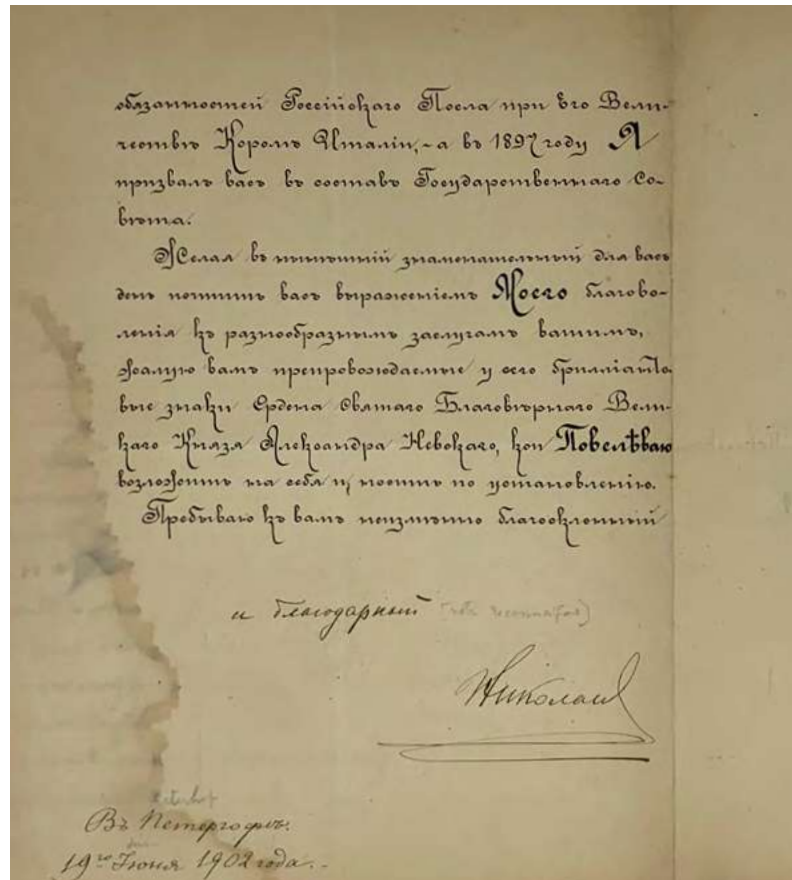 обязанностей Россійскаго Посла при Его Вели-
чествѣ Королѣ Италіи,-а въ 1897 году Я
призвалъ васъ въ составъ Государственнаго Со-
вѣта.
Желая въ нынѣшній знаменательный для васъ
день почтить васъ выраженіемъ Моего благово-
ленія къ разнообразнымъ заслугамъ вашимъ,
жалую вамъ препровождаемые у сего брилліанто
вые знаки Ордена Святаго Благовѣрнаго Вели-
каго Князя Александра Невскаго, кои Повелѣваю
возложить на себя и, носить по установленію.
Пребываю къ вамъ неизмѣнно благосклонный
и благодарный
Николай
Въ Петергофѣ.
19го Іюня 1902 года.